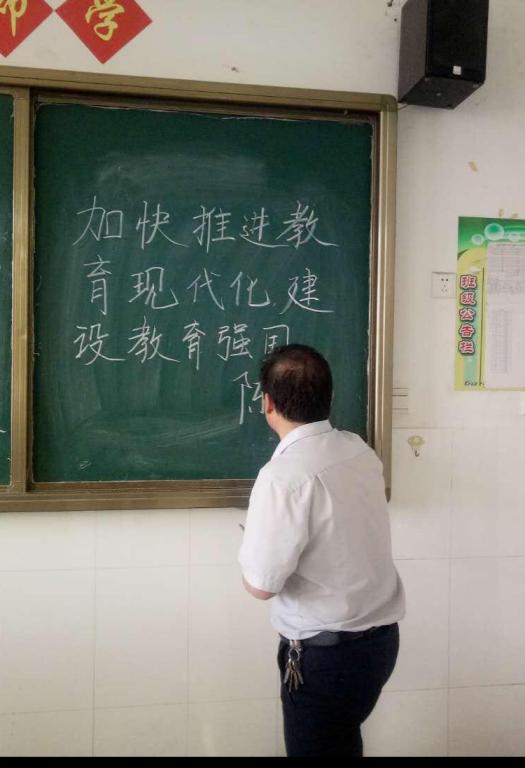 师 学
加快推进教
育现代化建
设教育强国
陈
班级公告栏